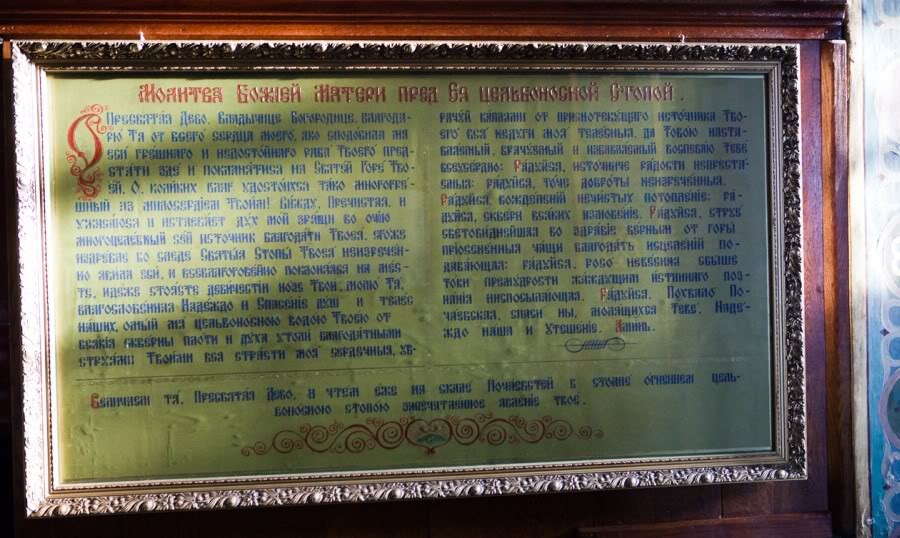 Молитва Божіей Матери пред Ея цельбоносной Стопой.
О Пресвятая Дево, Владычице Богородице, благода-
рю Тя от всего сердца моего, яко сподобила мя
еси грешнаго и недостойнаго раба Твоего пред-
стати зде и поклонятися на Святей Горе Тво-
ей. О, коликих благ удостоихся тако многогре-
шный из милосердiем Твоим! Вижду, Пречистая, и
ужасаюся и истаевает дух мой зрящи во очию
многоцелебный сей источник благодати Твоея, егоже
издревле во следе Святыя Стопы Твоея неизречен-
но явила еси, и всеблагоговейно покланяяся на мес-
те, идеже стоясте девичестiи нозе Твои, молю Тя,
благословенная Надеждо и Спасенiе души и телес
наших, омый мя цельбоносною водою Твоею от
всякiя скверны плоти и духа утоли благодатными
струями Твоими вся страсти моя сердечныя, ув-
рачуй каплями от приснотекущаго источника Тво-
его вся недуги моя телесныя, да Тобою настав-
ляемый, врачуемый и избавляемый воспеваю Тебе
всеусердно: Радуйся, источниче радости непреста-
емыя: радуйся, точе доброты неизреченныя.
Радуйся, вожделенiй нечистых потопленiе: ра-
дуйся, скверн всяких измовенiе. Радуйся, струе
световиднейшая во здравiе верным от горы
прiосененныя чащи благодать исцеленiй по-
давающая: радуйся, росо небесная свыше
токи премудрости жаждущим истиннаго поз-
нанiя ниспосылающая. Радуйся, Похвало По-
чаевская, спаси ны, молящихся Тебе, Надеж-
ждо наша и Утешенiе. Аминь.
Величаем тя, Пресвятая Дево, и чтем еже на скале Почаевстей в столпе огненнем цель-
боносною стопою запечатленное явленiе твое.